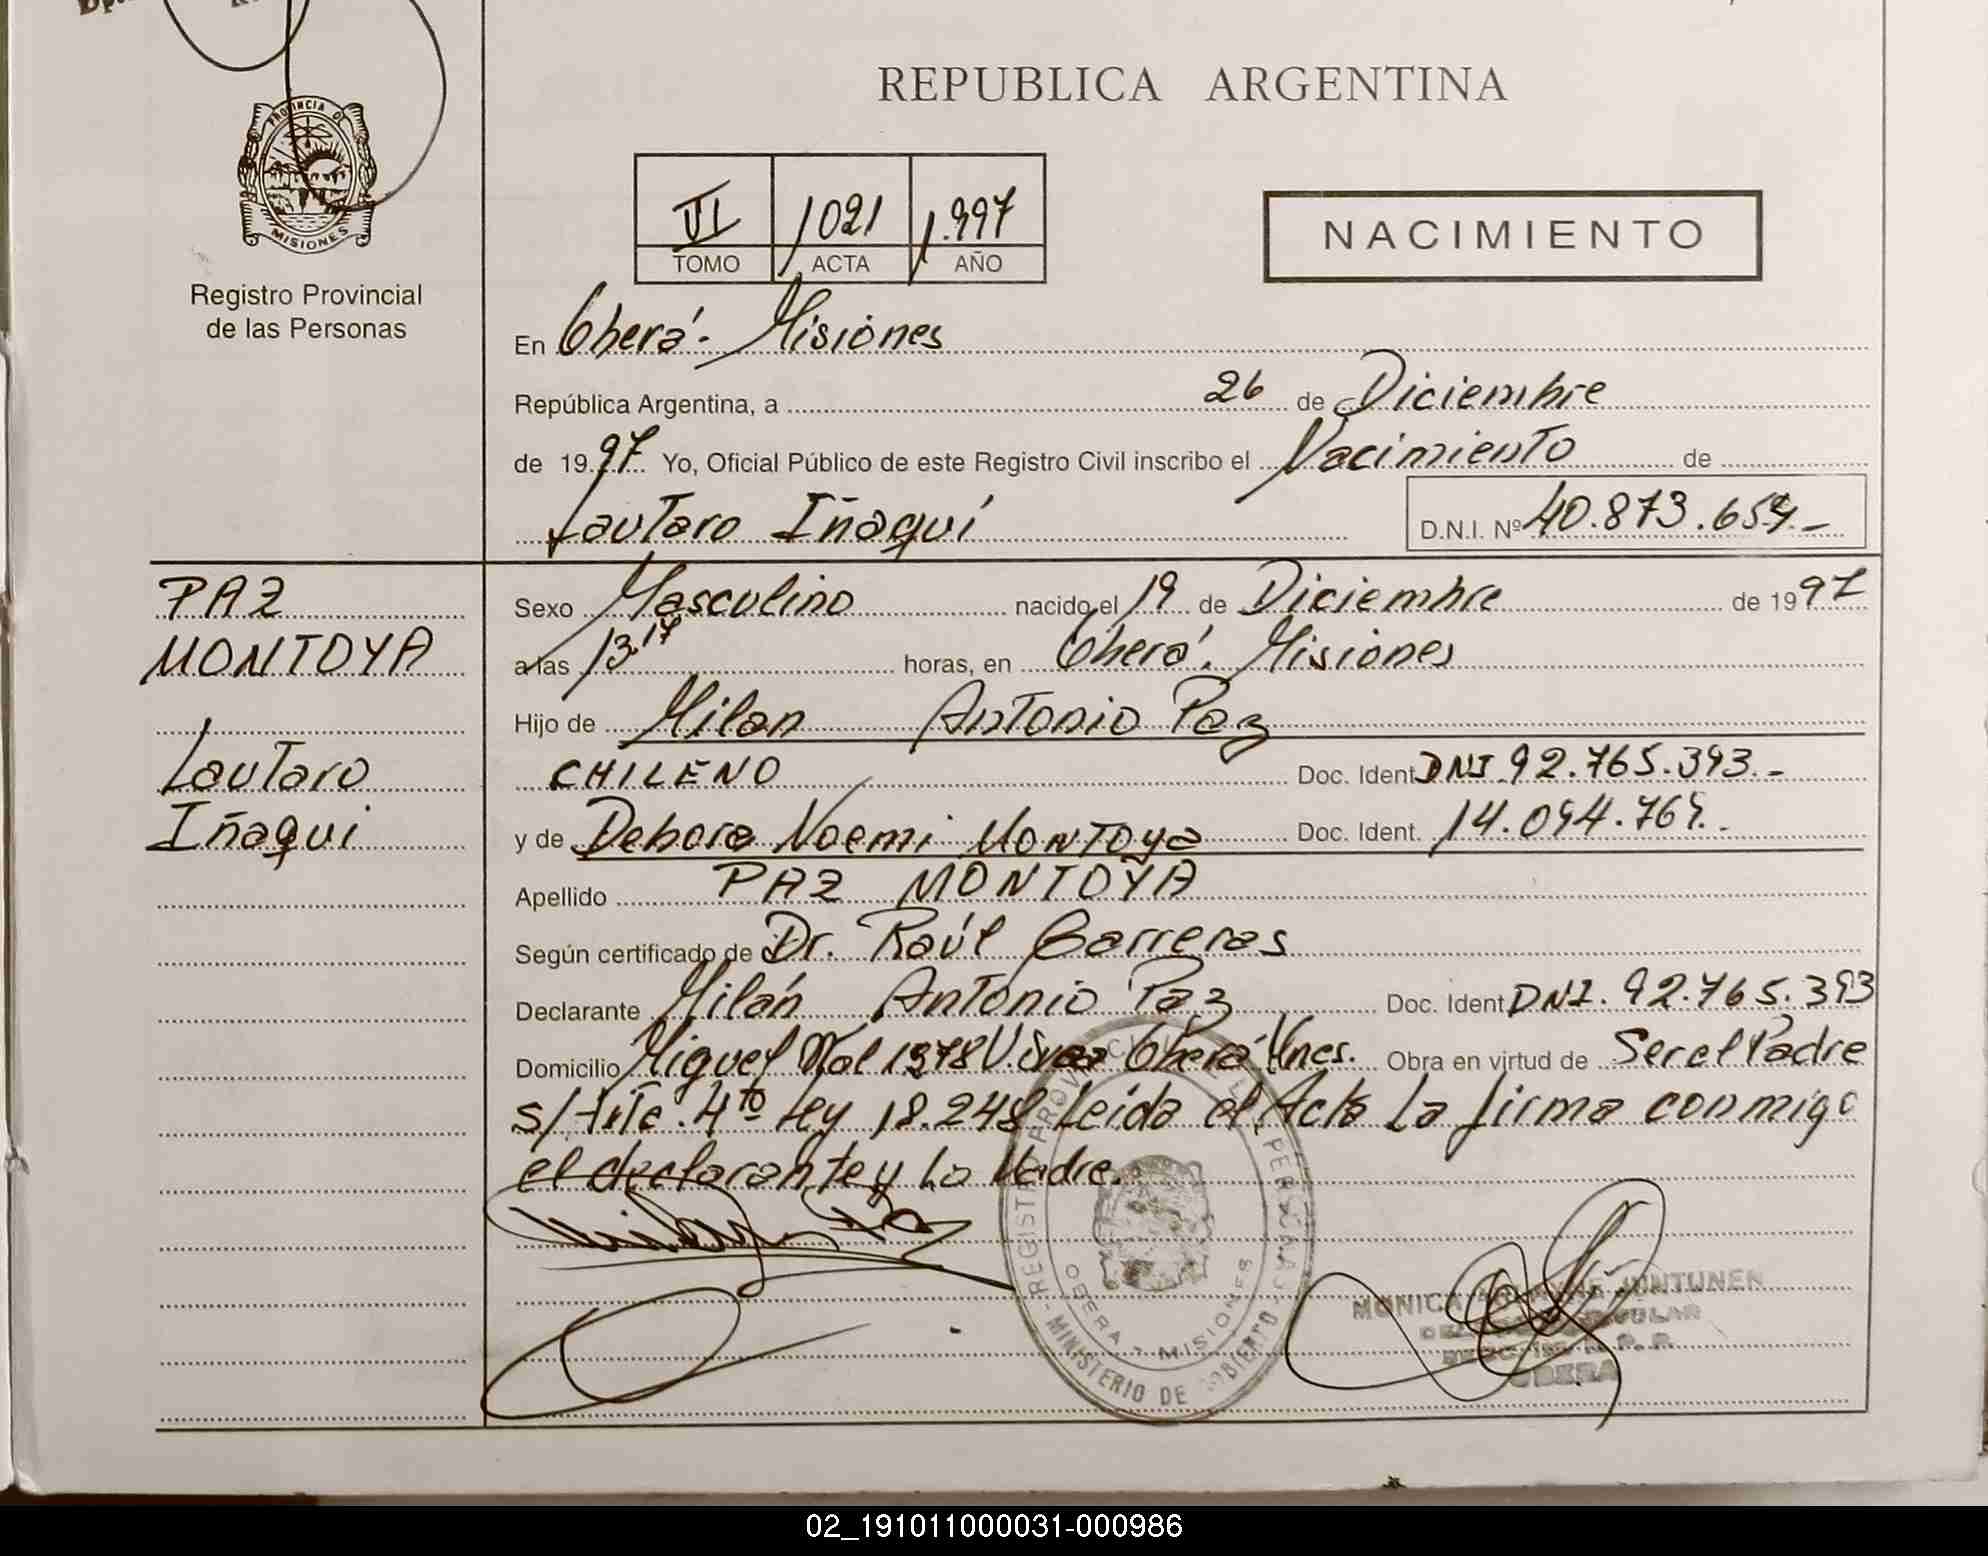 REPUBLICA ARGENTINA
PROVINCIA DE
MISIONES
Registro Provincial
de las Personas
VI 1021 1.997
TOMO ACTA AÑO
NACIMIENTO
En Oberá - Misiones
República Argentina, a 26 de Diciembre
de 1997 Yo, Oficial Público de este Registro Civil inscribo el Nacimiento de
Lautaro Iñaquí D.N.I. Nº 40.873.654.-
PAZ
MONTOYA
Lautaro
Iñaqui
Sexo Masculino nacido el 19 de Diciembre de 1997
a las 13 17 horas, en Oberá. Misiones
Hijo de Milan Antonio Paz
CHILENO Doc. Ident DNI 92.765.393.-
y de Debora Noemi Montoya Doc. Ident. 14.094.769.-
Apellido PAZ MONTOYA
Según certificado de Dr. Raúl Carreras
Declarante Milán Antonio Paz Doc. Ident DNI. 92.765.393
Domicilio Miguel 1378 Oberá Mnes. Obra en virtud de Ser el Padre
s/ 4to Ley 18.248 Leida el Acta La firma conmigo
el declarante y La Madre.
REGISTRO PROVINCIAL DE LAS PERSONAS
OBERA - MISIONES
- MINISTERIO DE GOBIERNO -
MONICA JUNTUNEN
OBERA
02_191011000031-000986